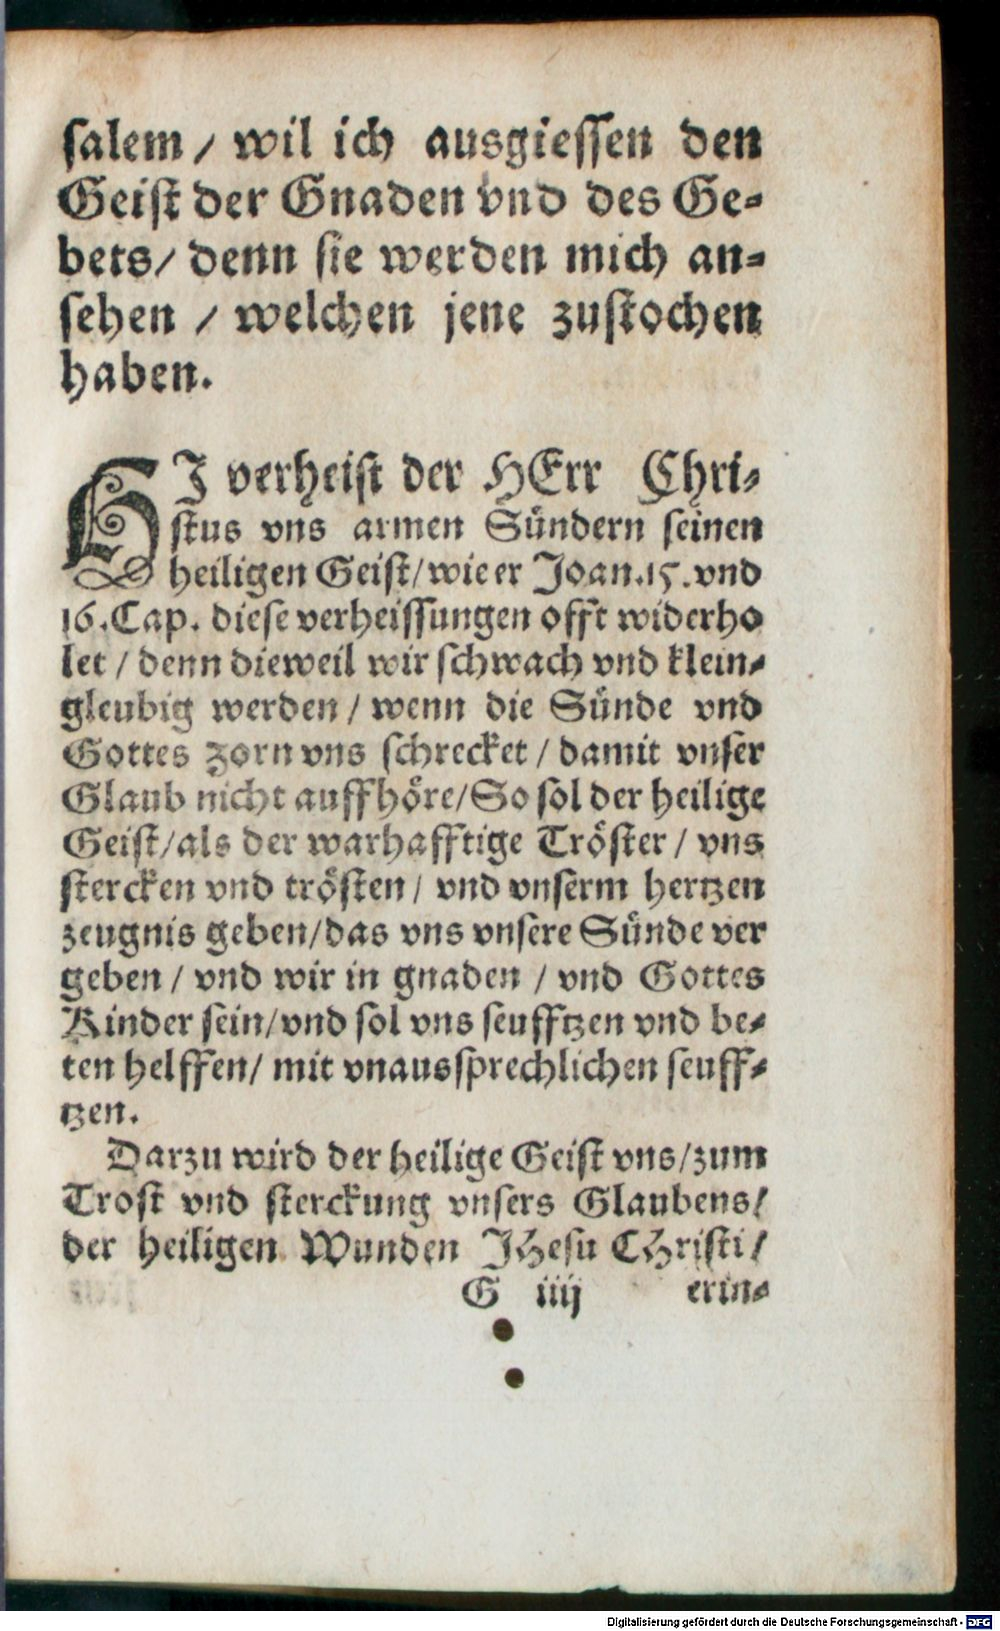 salem / wil ich ausgiessen den
Geist der Gnaden vnd des Ge-
bets / denn sie werden mich an-
sehen / welchen jene zustochen
haben.
HI verheist der HErr Chri-
stus vns armen Sündern seinen
heiligen Geist / wie er Joan. 15. vnd
16. Cap. diese verheissungen offt widerho
let / denn dieweil wir schwach vnd klein-
gleubig werden / wenn die Sünde vnd
Gottes zorn vns schrecket / damit vnser
Glaub nicht auffhöre / So sol der heilige
Geist / als der warhafftige Tröster / vns
stercken vnd trösten / vnd vnserm hertzen
zeugnis geben / das vns vnsere Sünde ver
geben / vnd wir in gnaden / vnd Gottes
Kinder sein / vnd sol vns seufftzen vnd be-
ten helffen / mit vnaussprechlichen seuff-
tzen.
Darzu wird der heilige Geist vns / zum
Trost vnd sterckung vnsers Glaubens /
der heiligen Wunden JHesu CHristi /
G iiij erin-
Digitalisierung gefördert durch die Deutsche Forschungsgemeinschaft - DFG